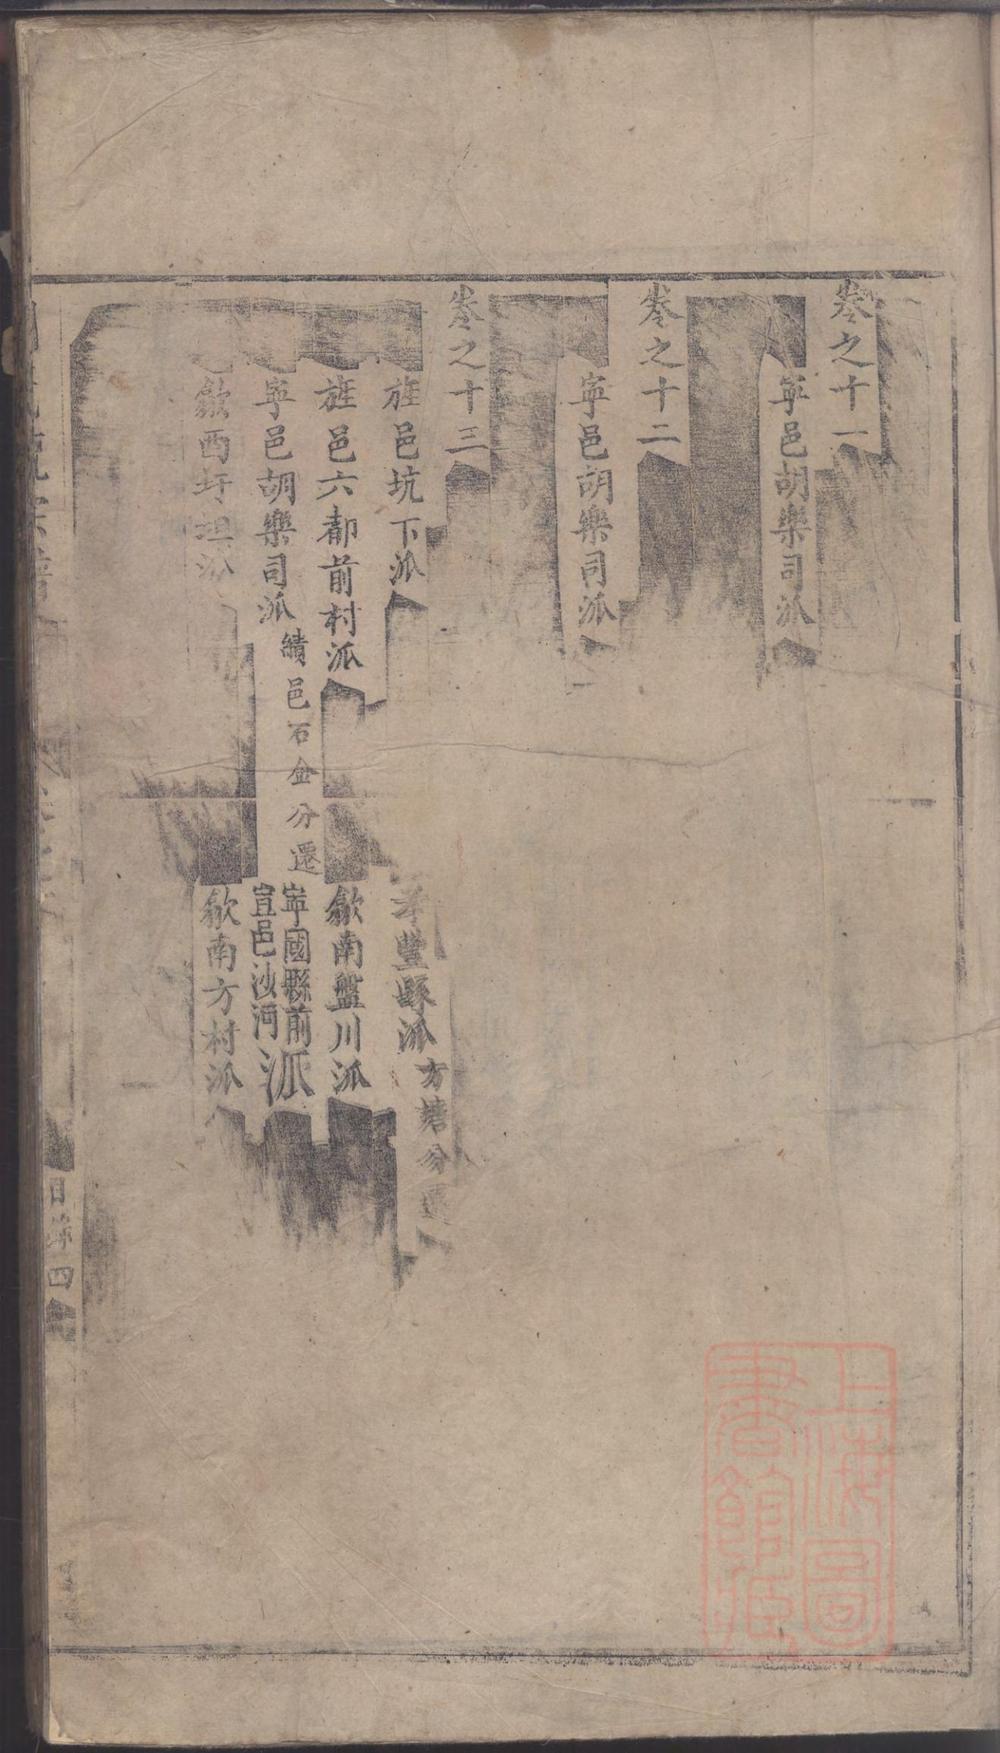 卷之十一
寧邑胡樂司派
卷之十二
寧邑胡樂司派
卷之十三
旌邑坑下派
孝豐縣派方塘分遷
旌邑六都前村派
歙南盤川派
寧邑胡樂司派績邑石金分遷
寧國縣前
宣邑沙河
派
歙西圩坦派
歙南方村派
宗譜
卷之
目錄 四
上海圖書館藏